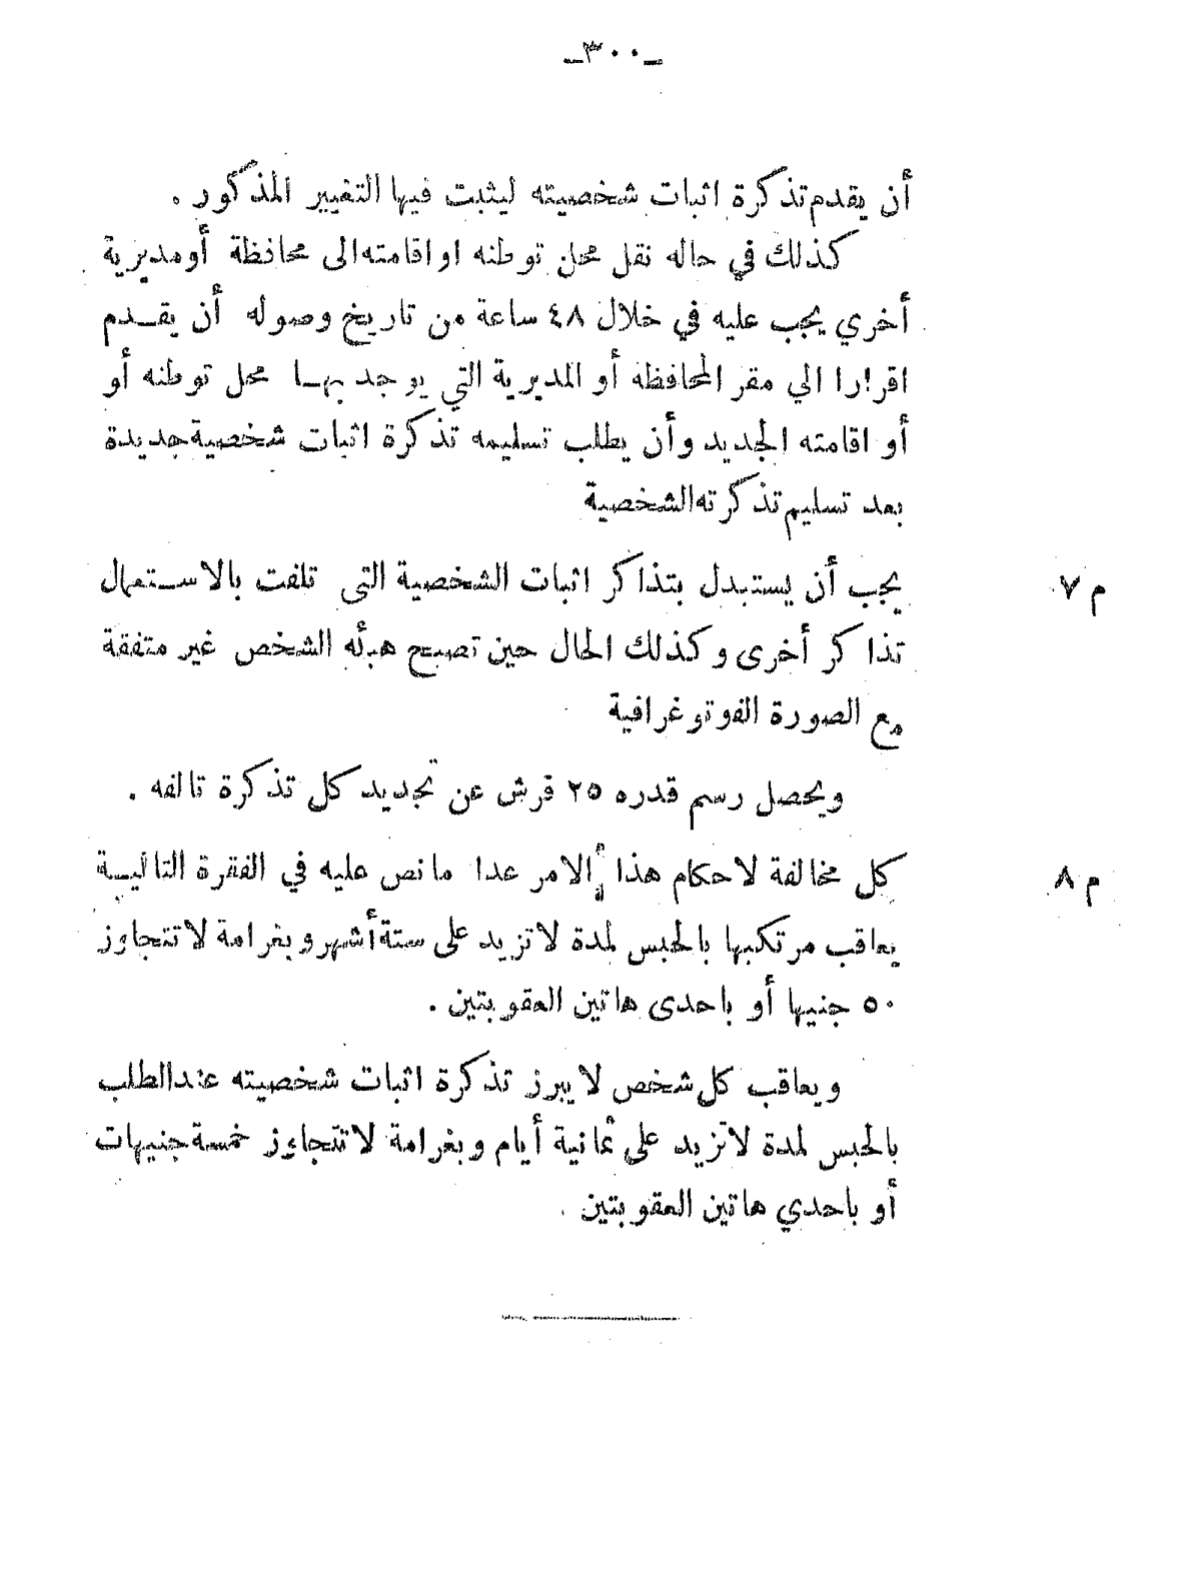 ـ٣٠٠ـ
أن يقدم تذكرة اثبات شخصيته ليثبت فيها التغيير المذكور .
كذلك في حاله نقل محل توطنه او اقامته الى محافظة أو مديرية
أخري يجب عليه في خلال ٤٨ ساعة من تاريخ وصوله أن يقـدم
اقرارا الي مقر المحافظه أو المديرية التي يوجد بهـا محل توطنه أو
أو اقامته الجديد وأن يطلب تسليمه تذكرة اثبات شخصية جديدة
بعد تسليم تذكرته الشخصية
م ٧ يجب أن يستبدل بتذاكر اثبات الشخصية التى تلفت بالاسـتعمال
تذاكر أخرى وكذلك الحال حين تصبح هيئه الشخص غير متفقة
مع الصورة الفوتوغرافية
ويحصل رسم قدره ٢٥ قرش عن تجديد كل تذكرة تالفه .
م ٨ كل مخالفة لاحكام هذا الامر عدا مانص عليه في الفقرة التاليـة
يعاقب مرتكبها بالحبس لمدة لاتزيد على ستة أشهر وبغرامة لاتتجاوز
٥٠ جنيها أو باحدى هاتين العقوبتين .
ويعاقب كل شخص لا يبرز تذكرة اثبات شخصيته عند الطلب
بالحبس لمدة لاتزيد على ثمانية أيام وبغرامة لاتتجاوز خمسة جنيهات
أو باحدي هاتين العقوبتين .